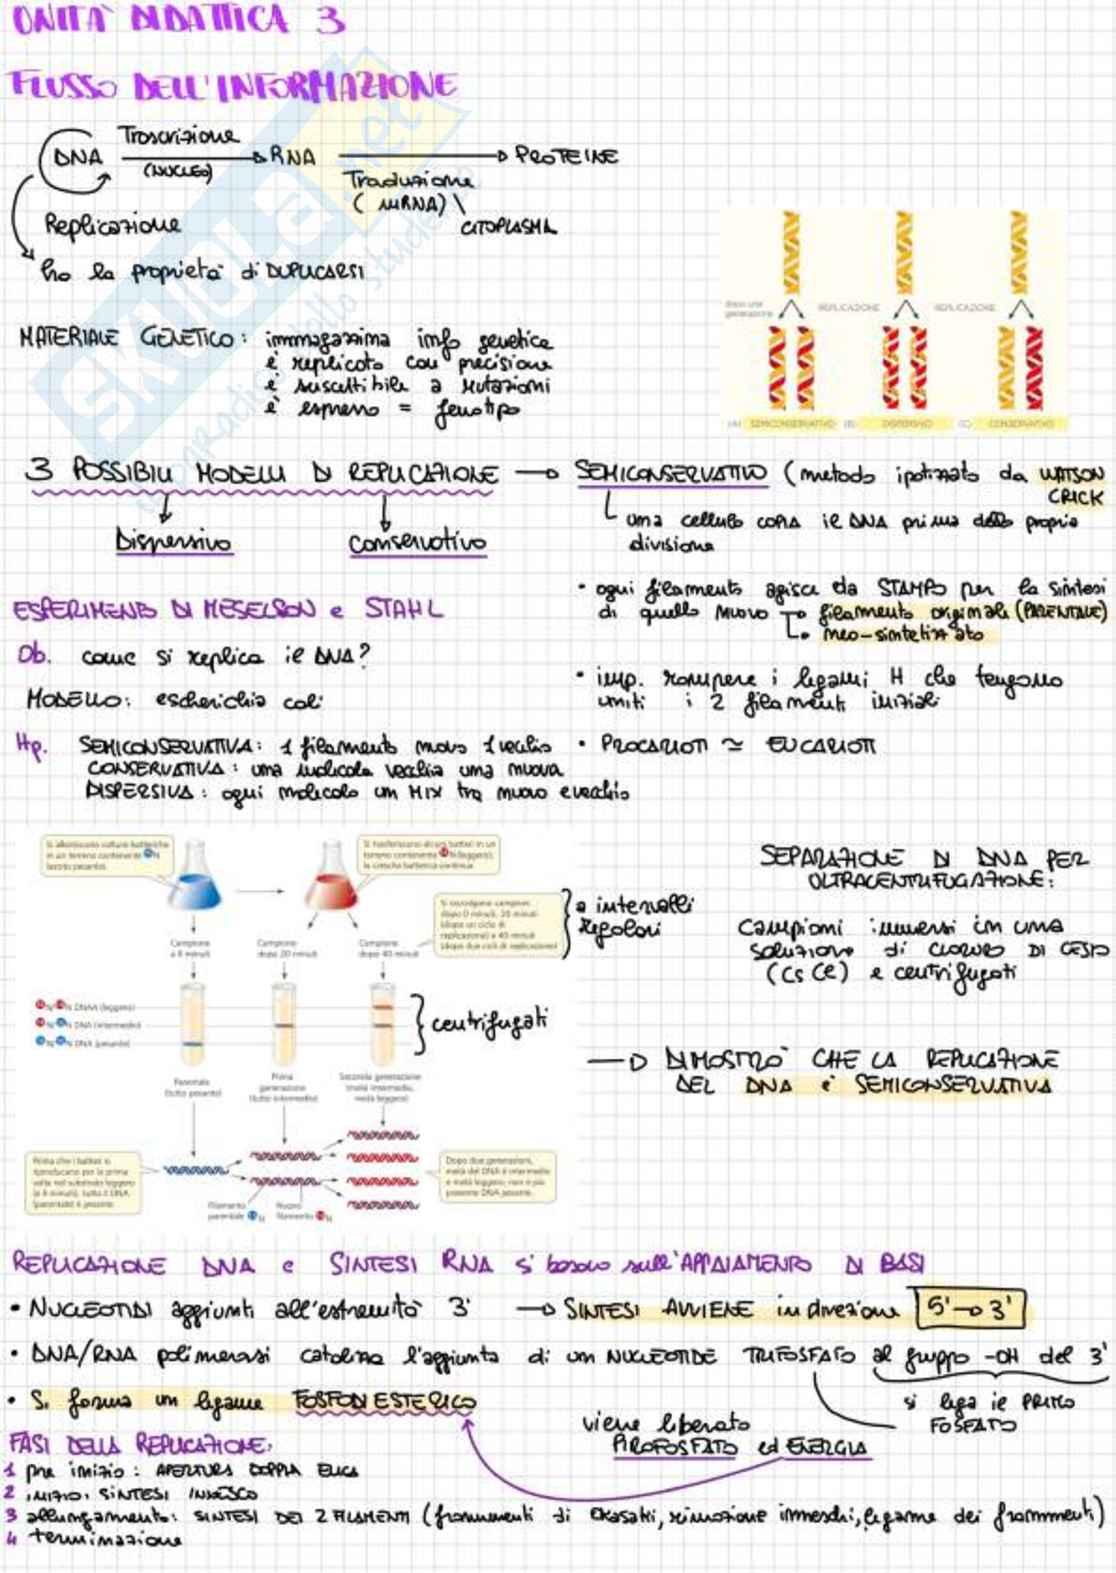 UNITA' DIDATTICA 3
FLUSSO DELL'INFORMAZIONE
DNA Trascrizione (NUCLEO) RNA Traduzione (mRNA) \ CITOPLASMA PROTEINE
Replicazione
ho la proprietà di DUPLICARSI
dopo una generazione REPLICAZIONE REPLICAZIONE
(A) SEMICONSERVATIVO (B) DISPERSIVO (C) CONSERVATIVO
MATERIALE GENETICO: immagazzina info genetica
è replicato con precisione
è suscettibile a mutazioni
è espresso = fenotipo
3 POSSIBILI MODELLI DI REPLICAZIONE → SEMICONSERVATIVO (metodo ipotizzato da WATSON
CRICK
Dispersivo conservativo
una cellula copia il DNA prima della propria
divisione
• ogni filamento agisce da STAMPO per la sintesi
di quello nuovo → filamento originale (PARENTALE)
→ neo-sintetizzato
• imp. rompere i legami H che tengono
uniti i 2 filamenti iniziali
• PROCARIOTI ≃ EUCARIOTI
ESPERIMENTO DI MESELSON e STAHL
Ob. come si replica il DNA?
MODELLO: escherichia coli
Hp. SEMICONSERVATIVA: 1 filamento nuovo 1 vecchio
CONSERVATIVA: una molecola vecchia una nuova
DISPERSIVA: ogni molecola un MIX tra nuovo e vecchio
Si allestiscono colture batteriche
in un terreno contenente ¹⁵N
(azoto pesante).
Si trasferiscono alcuni batteri in un
terreno contenente ¹⁴N (leggero);
la crescita batterica continua.
Si raccolgono campioni
dopo 0 minuti, 20 minuti
(dopo un ciclo di
replicazione) e 40 minuti
(dopo due cicli di replicazione)
a intervalli
regolari
Campione
a 0 minuti
Campione
dopo 20 minuti
Campione
dopo 40 minuti
¹⁴N/¹⁴N DNA (leggero)
¹⁴N/¹⁵N DNA (intermedio)
¹⁵N/¹⁵N DNA (pesante)
centrifugati
Parentale
(tutto pesante)
Prima
generazione
(tutto intermedio)
Seconda generazione
(metà intermedio,
metà leggero)
Prima che i batteri si
riproducano per la prima
volta nel substrato leggero
(a 0 minuti), tutto il DNA
(parentale) è pesante.
Filamento
parentale ¹⁵N
Nuovo
filamento ¹⁴N
Dopo due generazioni,
metà del DNA è intermedio
e metà leggero; non è più
presente DNA pesante.
SEPARAZIONE DI DNA PER
ULTRACENTRIFUGAZIONE:
campioni immersi in una
soluzione di CLORURO DI CESIO
(CsCl) e centrifugati
→ DIMOSTRO' CHE LA REPLICAZIONE
DEL DNA è SEMICONSERVATIVA
REPLICAZIONE DNA e SINTESI RNA si basano sull'APPAIAMENTO DI BASI
• NUCLEOTIDI aggiunti all'estremità 3' → SINTESI AVVIENE in direzione 5'→3'
• DNA/RNA polimerasi catalizza l'aggiunta di un NUCLEOTIDE TRIFOSFATO al gruppo -OH del 3'
si lega il PRIMO
FOSFATO
• Si forma un legame FOSFODIESTERICO
viene liberato
PIROFOSFATO ed ENERGIA
FASI DELLA REPLICAZIONE:
1 pre inizio: APERTURA DOPPIA ELICA
2 inizio: SINTESI INNESCO
3 allungamento: SINTESI DEI 2 FILAMENTI (frammenti di Okasaki, rimozione inneschi, legame dei frammenti)
4 terminazione